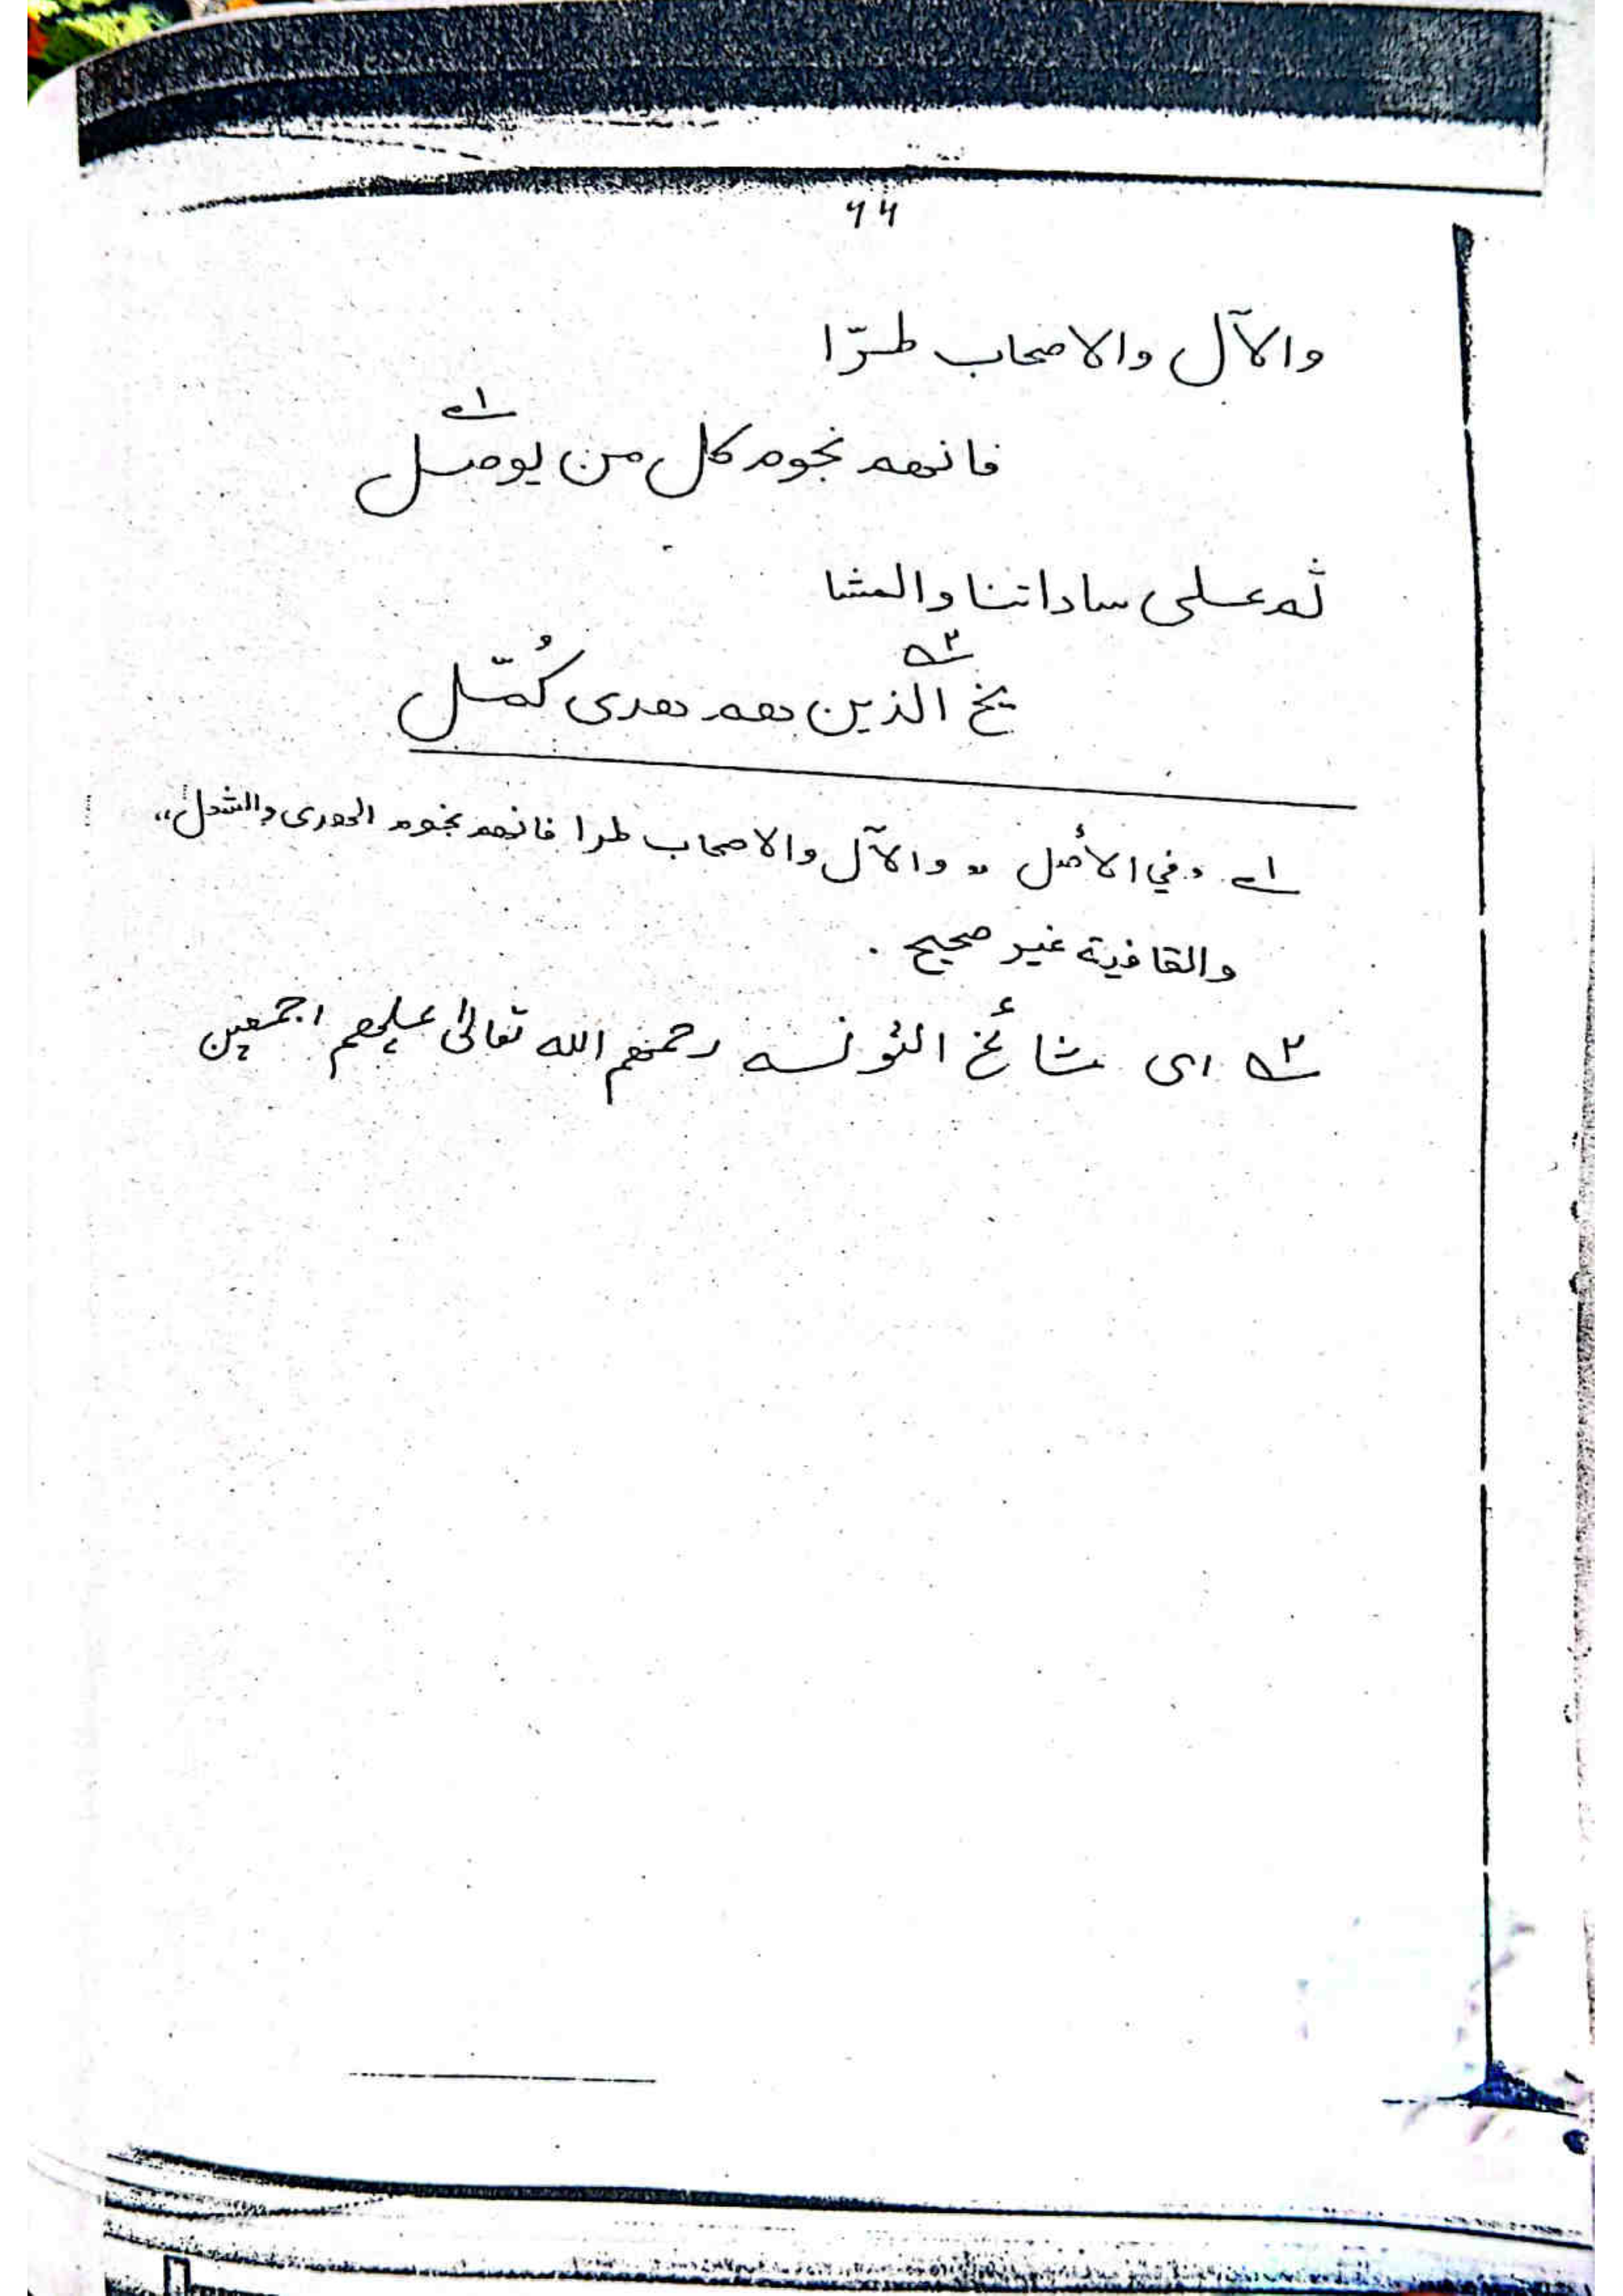 ۶۶
والآل والاصحاب طرّا
فانهم نجوم كل من يوصل ١ـ
ثم على ساداتنا والمشا
يخ الذين هم هدى كُمّل ٢ـ
١ـ وفي الأصل " والآل والاصحاب طرا فانهم نجوم الهدى
والقافية غير صحيح .
٢ـ اى مشائخ رحمهم الله تعالىٰ عليهم اجمعين